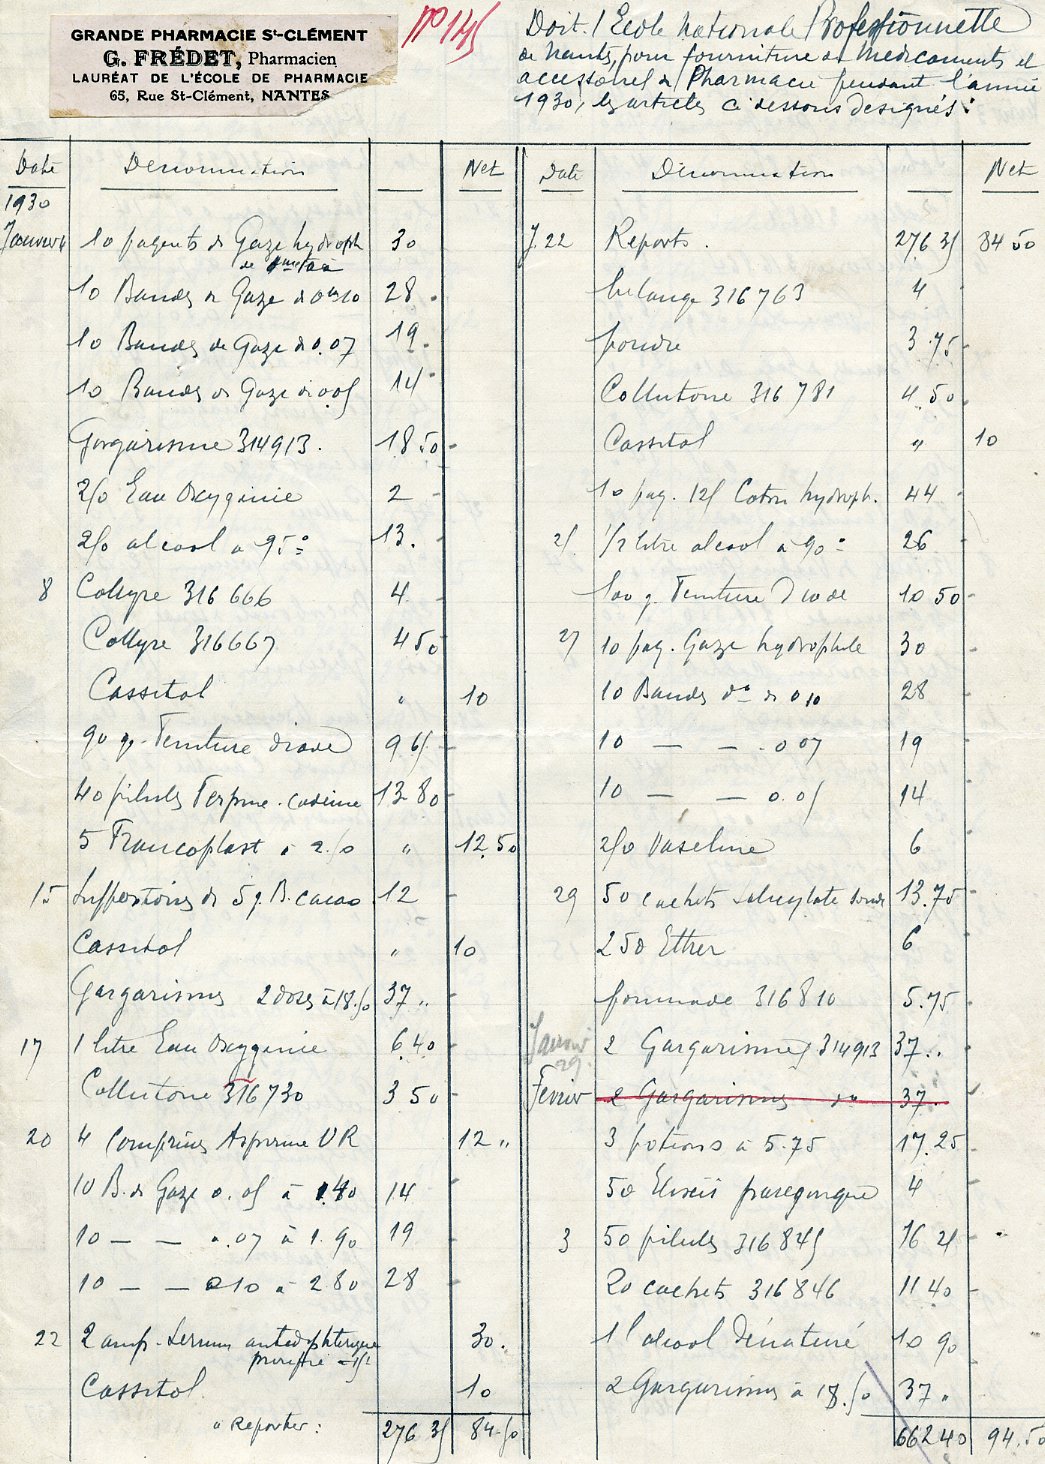 GRANDE PHARMACIE St-CLÉMENT
G. FRÉDET, Pharmacien
LAURÉAT DE L'ÉCOLE DE PHARMACIE
65, Rue St-Clément, NANTES
Doit l'École Nationale Professionnelle
de Nantes, pour fourniture de Médicaments et
accessoires de Pharmacie pendant l'année
1930, les articles ci dessous designés :
Date Dénomination Net
1930
Janvier 10 paquets de Gaze hydroph 30
10 Bandes de Gaze de 0m10 28
10 Bandes de Gaze de 0.07 19
10 Bandes de Gaze de 0.05 14
Gargarisme 314913. 18 50
Eau Oxygénie 2
alcool a 95° 13.
8 Collyre 316 666 4
Collyre 316667 4 50
Cassitol " 10
90 gr. Teinture d'iode 9 45
40 pilules Terpine. codéine 13 80
5 Francoplast a 2.50 " 12.50
15 Suppositoires de 5 g. B. cacao 12
Cassitol " 10
Gargarismes 2 doses à 18.50 37 "
17 1 litre Eau Oxygénie 6 40
Collutoire 316730 3 50
20 4 Comprimés Aspirine UR 12 "
10 B. de Gaze 0.05 à 1.40 14
10 — — 0.07 à 1.90 19
10 — — 0 10 a 2 80 28
22 2 amp. Serum antidiphterique 30.
purifié
Cassitol. 10
a Reporter : 276 35 84.50
Date Dénomination Net
J. 22 Reports. 276 35 84 50
Melange 316763 4
poudre 3.75
Collutoire 316 781 4.50
Cassitol " 10
10 paq. 125 Coton hydroph. 44
25 1/2 litre alcool à 90° 26
100 g. Teinture d'iode 10 50
27 10 paq. Gaze hydrophile 30
10 Bandes do de 0 10 28
10 — — 0 07 19
10 — — 0.05 14
Vaseline 6
29 50 cachets salicylate soude 13.75
250 Ether 6
pommade 316810 5.75
Janvier 29. 2 Gargarismes 314913 37..
Fevrier 2 Gargarismes do 37.
3 potions a 5.75 17.25
50 Elixir paregorique 4
3 50 pilules 316845 16 25
20 cachets 316846 11 40
1 l alcool Dénaturé 10 90
2 Gargarismes à 18.50 37 "
662 40 94.50